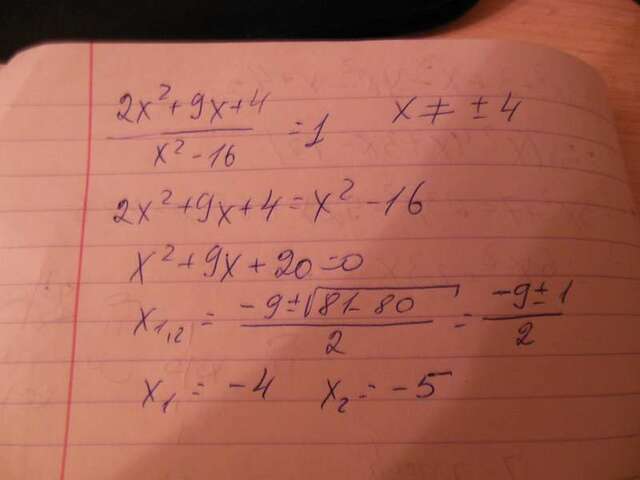 (2x²+9x+4)/(x²-16) = 1 x ≠ ± 4
2x²+9x+4 = x²-16
x²+9x+20=0
x₁,₂ = (-9±√(81-80))/2 = (-9±1)/2
x₁ = -4 x₂ = -5